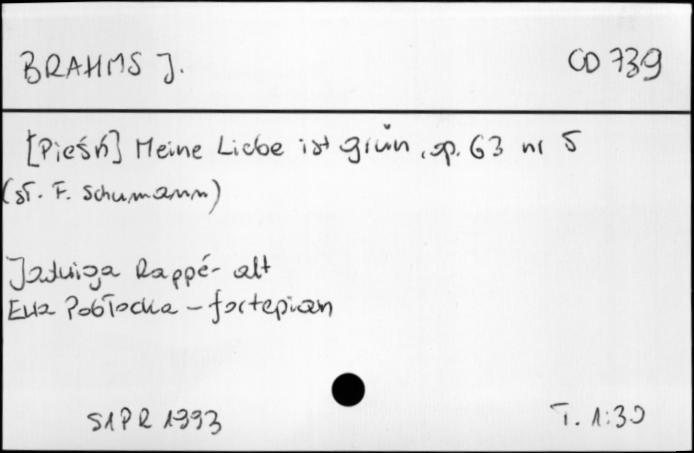 BRAHMS J.
CD 739
[Pieśń] Meine Liebe ist grün, op. 63 nr 5
(sł. F. Schumann)
Jadwiga Rappé - alt
Ewa Pobłocka - fortepian
S1PR 1993
T. 1:30